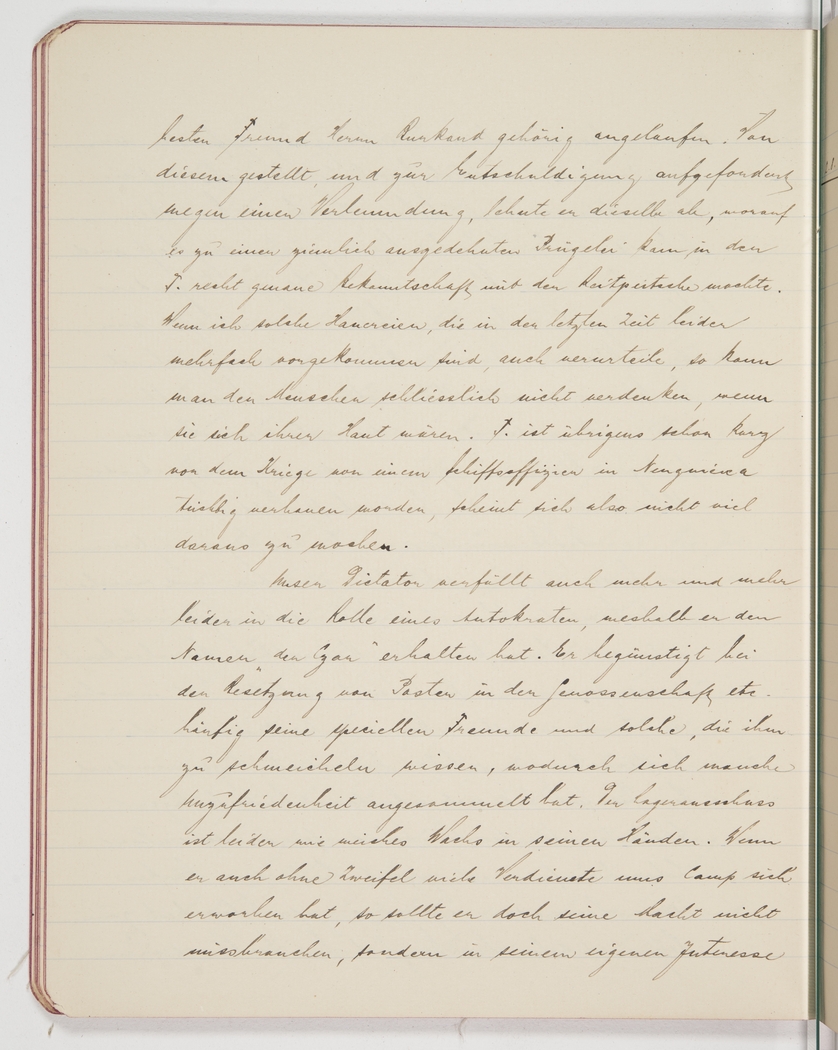 besten Freund Herrn Kurkand gehörig angelaufen. Von
diesem gestellt, und zur Entschuldigung aufgefordert
wegen einer Verleumdung, lehnte er dieselbe ab, worauf
es zu einer ziemlich ausgedehnten "Prügelei" kam, in der
T. recht genaue Bekanntschaft mit der Reitpeitsche machte.
Wenn ich solche Hauereien, die in der letzten Zeit leider
mehrfach vorgekommen sind, auch verurteile, so kann
man den Menschen schliesslich nicht verdenken, wenn
sie sich ihrer Haut wären. T. ist übrigens schon kurz
vor dem Kriege von einem Schiffsoffizier in Neuguinea
tüchtig verhauen worden, scheint sich also nicht viel
daraus zu machen.
Unser Dictator verfällt auch mehr und mehr
leider in die Rolle eines Autokraten, weshalb er den
Namen „der Czar" erhalten hat. Er begünstigt bei
der Besetzung von Posten in der Genossenschaft etc.
häufig seine speciellen Freunde und solche, die ihm
zu schmeicheln wissen, wodurch sich manche
Unzufriedenheit angesammelt hat. Der Lagerausschuss
ist leider wie weiches Wachs in seinen Händen. Wenn
er auch ohne Zweifel viele Verdienste ums Camp sich
erworben hat, so sollte er doch seine Macht nicht
missbrauchen, sondern in seinem eigenen Interesse